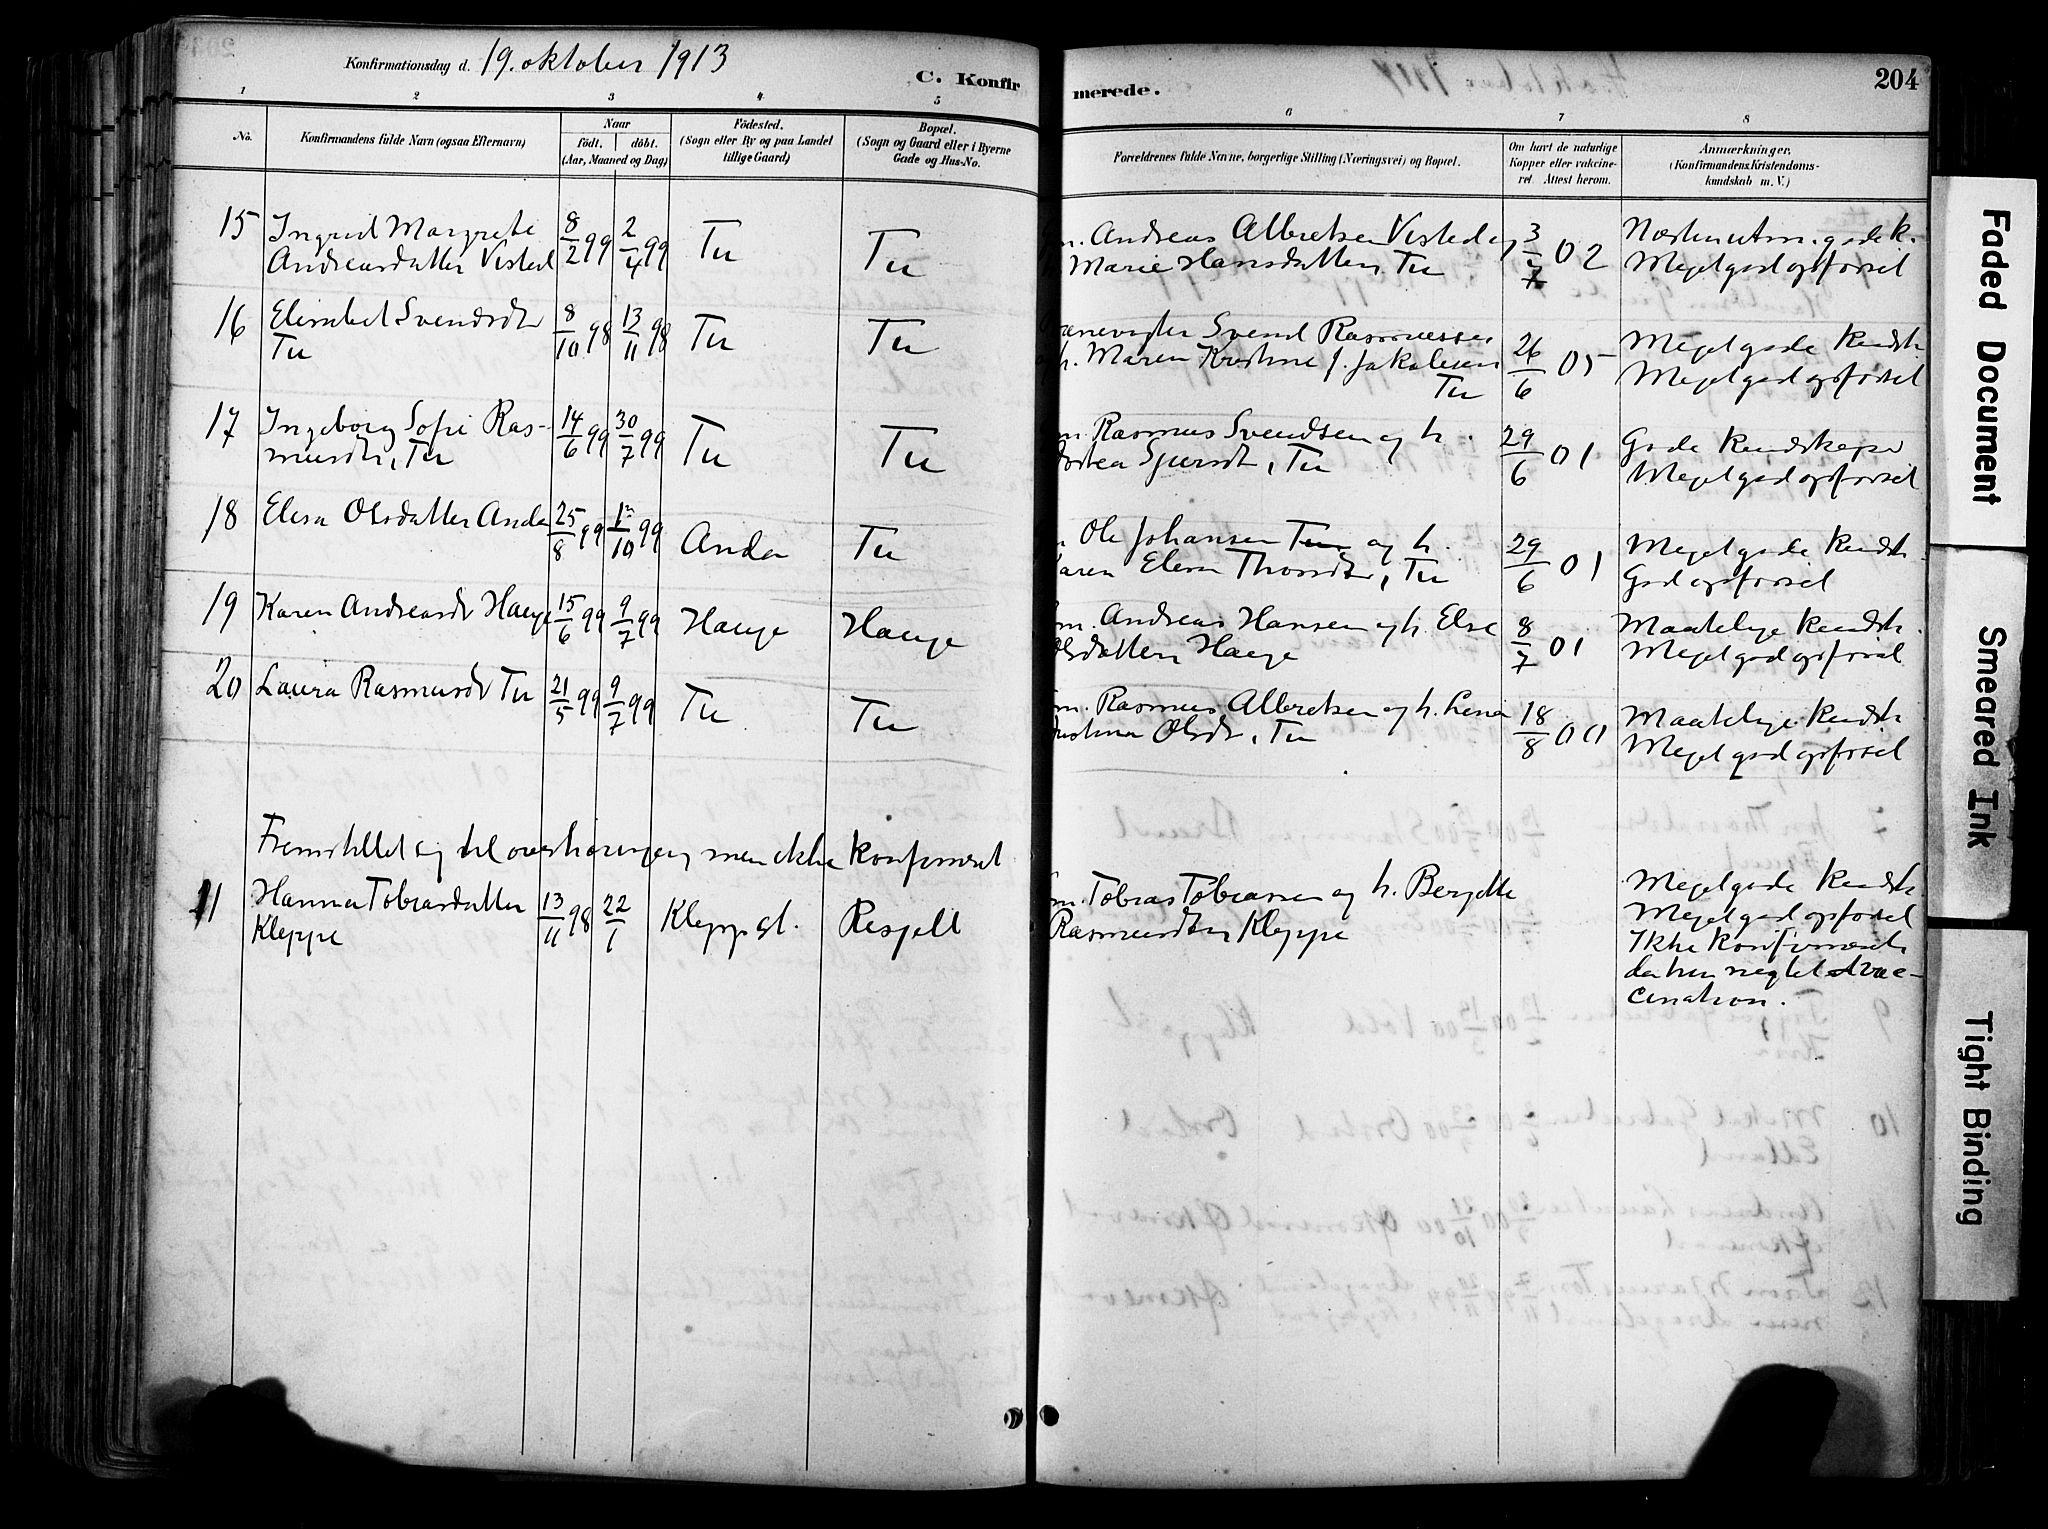 Konfirmationsdag d. 19. oktober 1913
C. Konfirmerede.
204
1 2 3 4 5 6 7 8
No.
Konfirmandens fulde Navn (ogsaa Efternavn)
Naar
födt. döbt.
(Aar, Maaned og Dag)
Födested.
(Sogn eller By og paa Landet
tillige Gaard)
Bopæl.
(Sogn og Gaard eller i Byerne
Gade og Hus-No.
Forældrenes fulde Navne, borgerlige Stilling (Næringsvei) og Bopæl.
Om havt de naturlige
Kopper eller vakcine-
ret. Attest herom.
Anmærkninger,
(Konfirmandens Kristendoms-
kundskab m. V.)
15 Ingrid Margrete 8/2 99 2/4 99 Tu Tu
Andreasdatter Visted
Andreas Albretsen Visted og 3/7 02
Marie Hansdatter, Tu
Næsten utm. gode k.
Meget god opførsel
16 Elisabet Svendsdtr 8/10 98 13/11 98 Tu Tu
Tu
Svend Rasmussen 26/6 05
h. Maren Kristine f. Jakobsen
Tu
Meget gode kundsk.
Meget god opførsel
17 Ingeborg Sofie Ras- 14/6 99 30/7 99 Tu Tu
musdtr, Tu
Rasmus Svendsen og h. 29/6 01
Sjursdt, Tu
Gode kundskaper
Meget god opførsel
18 Elisa Olsdatter Anda 25/8 99 1/10 99 Anda Tu
Ole Johansen Tu og h. 29/6 01
Karen Elisa Thorsdtr, Tu
Meget gode kundsk.
God opførsel
19 Karen Andreasdt Hauge 15/6 99 9/7 99 Hauge Hauge
Andreas Hansen og h. Else 8/7 01
Olsdatter Hauge
Maatelige kundsk.
Meget god opførsel
20 Laura Rasmusdt Tu 21/5 99 9/7 99 Tu Tu
Rasmus Albretsen og h. Lena 18/8 00
Olsdt, Tu
Maatelige kundsk.
Meget god opførsel
Fremstillet sig til overhøringen, men ikke konfirmeret
Hanna Tobiasdatter 13/11 98 22/1 Kleppest. Risfelt
Kleppe
Tobias Tobiassen og h. Bergitte
Rasmusdtr, Kleppe
Meget gode kundsk.
Meget god opførsel
Ikke konfirmeret
da hun negtet vac-
cination.
Faded Document
Smeared Ink
Tight Binding